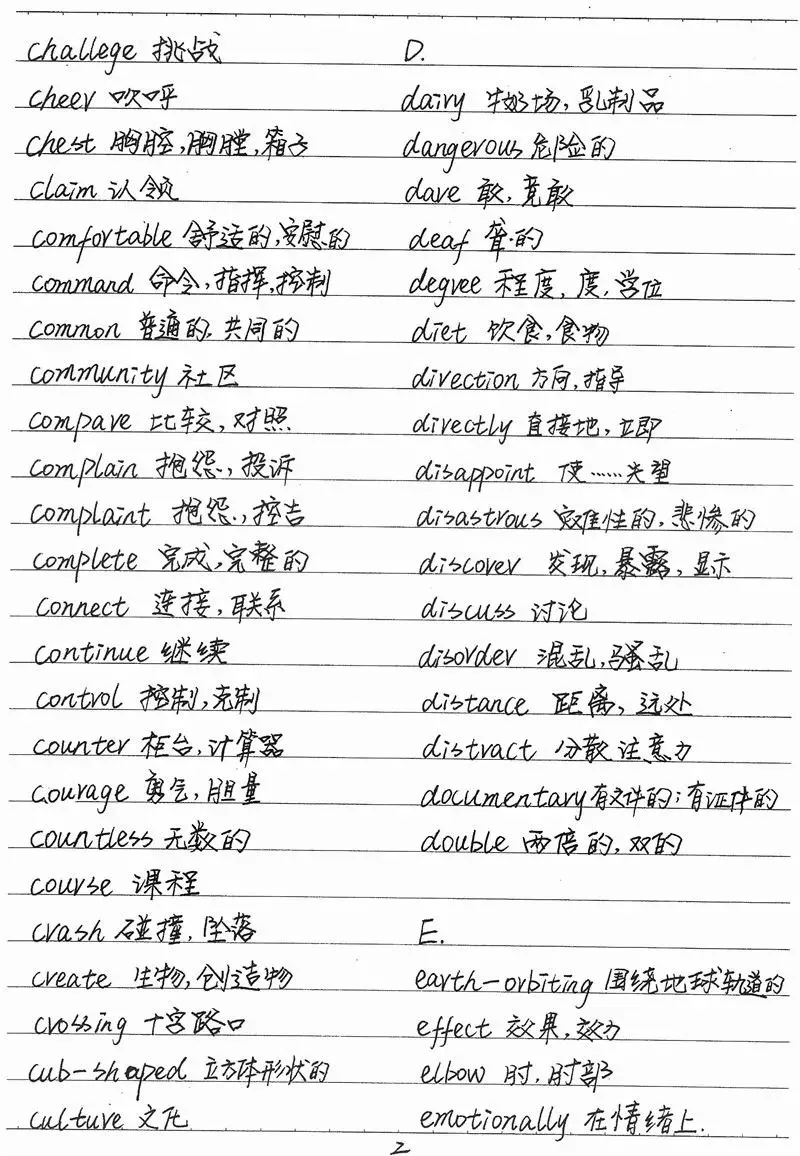 challege 挑战
cheer 吹呼
chest 胸腔,胸膛,箱子
claim 认领
comfortable 舒适的,安慰的
command 命令,指挥,控制
common 普通的,共同的
community 社区
compare 比较,对照
complain 抱怨,投诉
complaint 抱怨,控告
complete 完成,完整的
connect 连接,联系
continue 继续
control 控制,克制
counter 柜台,计算器
courage 勇气,胆量
countless 无数的
course 课程
crash 碰撞,坠落
create 生物,创造物
crossing 十字路口
cub-shaped 立方体形状的
culture 文化
D.
dairy 牛奶场,乳制品
dangerous 危险的
dare 敢,竟敢
deaf 聋的
degree 程度,度,学位
diet 饮食,食物
direction 方向,指导
directly 直接地,立即
disappoint 使……失望
disastrous 灾难性的,悲惨的
discover 发现,暴露,显示
discuss 讨论
disorder 混乱,骚乱
distance 距离,远处
distract 分散注意力
documentary 有文件的;有证件的
double 两倍的,双的
E.
earth-orbiting 围绕地球轨道的
effect 效果,效力
elbow 肘,肘部
emotionally 在情绪上.
2